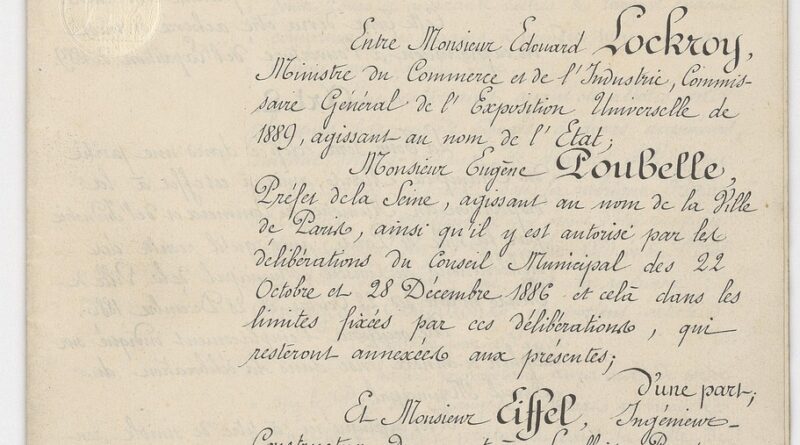 Entre Monsieur Edouard Lockroy,
Ministre du Commerce et de l'Industrie, Commis-
saire Général de l'Exposition Universelle de
1889, agissant au nom de l'Etat;
Monsieur Eugène Poubelle,
Préfet de la Seine, agissant au nom de la Ville
de Paris, ainsi qu'il y est autorisé par les
délibérations du Conseil Municipal des 22
Octobre et 28 Décembre 1886 et celà dans les
limites fixées par ces délibérations, qui
resteront annexées aux présentes;
D'une part;
Et Monsieur Eiffel, Ingénieur-